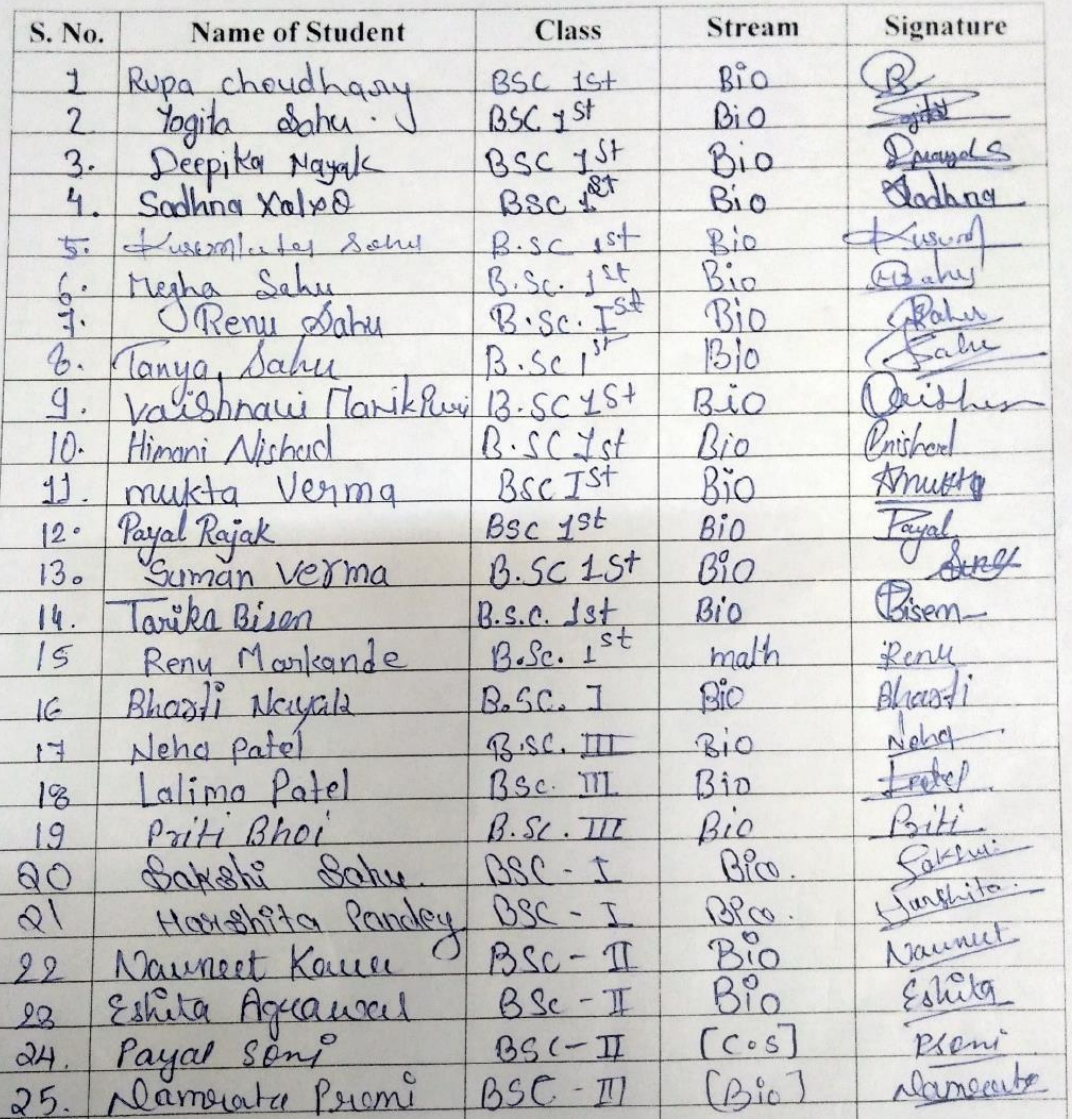 S. No. Name of Student Class Stream Signature
1 Rupa choudhary BSC 1st Bio
2 Yogita Sahu. BSC 1st Bio
3. Deepika Nayak BSC 1st Bio
4. Sadhna Xalxo BSC 1st Bio Sadhna
5. Sahu B.SC 1st Bio Kusum
6. Megha Sahu B.Sc. 1st Bio Sahu
7. Renu Sahu B.Sc. Ist Bio Sahu
8. Tanya Sahu B.SC 1st Bio Sahu
9. Vaishnavi Manikpuri B.SC 1st Bio
10. Himani Nishad B.SC 1st Bio
11. mukta Verma BSC Ist Bio Mukta
12. Payal Rajak BSC 1st Bio Payal
13. Suman Verma B.SC 1st Bio
14. Tarika Bisen B.S.C. 1st Bio Bisen
15 Renu Markande B.Sc. 1st math Renu
16 Bharti Nayak B.SC. I Bio Bharti
17 Neha Patel B.SC. III Bio Neha
18 Lalima Patel BSC. III Bio
19 Priti Bhoi B.Sc. III Bio Priti
20 Sakshi Sahu. BSC - I Bio. Sakshi
21 Harshita Pandey BSC - I Bio. Harshita.
22 Navneet Kaur BSc - II Bio Navneet
23 Eshita Agrawal BSc - II Bio Eshita
24. Payal Soni BSC - II [C.S] PSoni
25. Namrata Premi BSC - III (Bio) Namrata